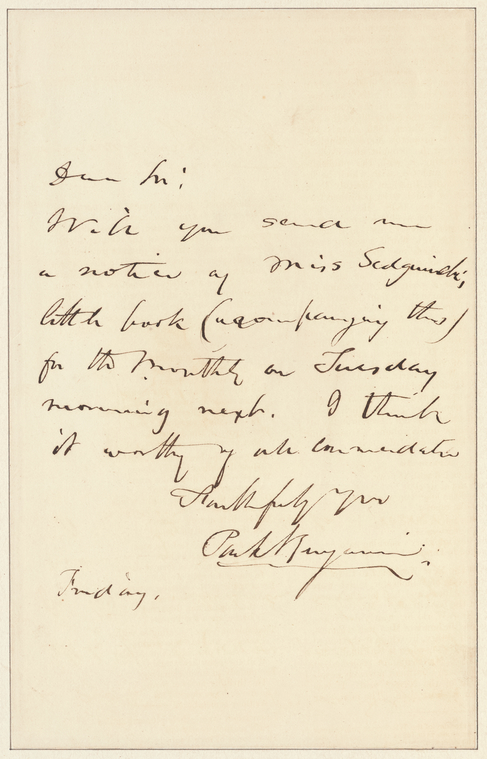 Dear Sir:
Will you send me
a notice of Miss Sedgwick's
little book (accompanying this)
for the Monthly on Tuesday
morning next. I think
it worthy of all commendation
Faithfully Yrs
Park Benjamin.
Friday.